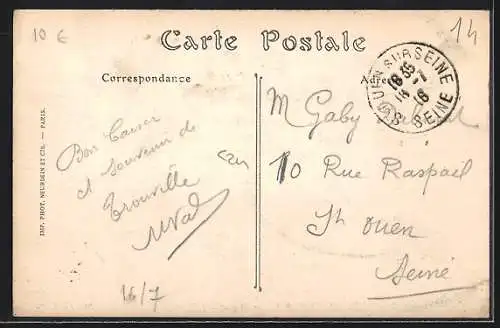 10 €
14
Carte Postale
Correspondance
Adre
OUEN SUR SEINE
18 35
16 -7
16
SEINE
Bon baiser
et souvenir de
Trouville
16/7
M Gaby
10 Rue Raspail
St Ouen
Seine
IMP. PHOT. NEURDEIN ET CIE. — PARIS.